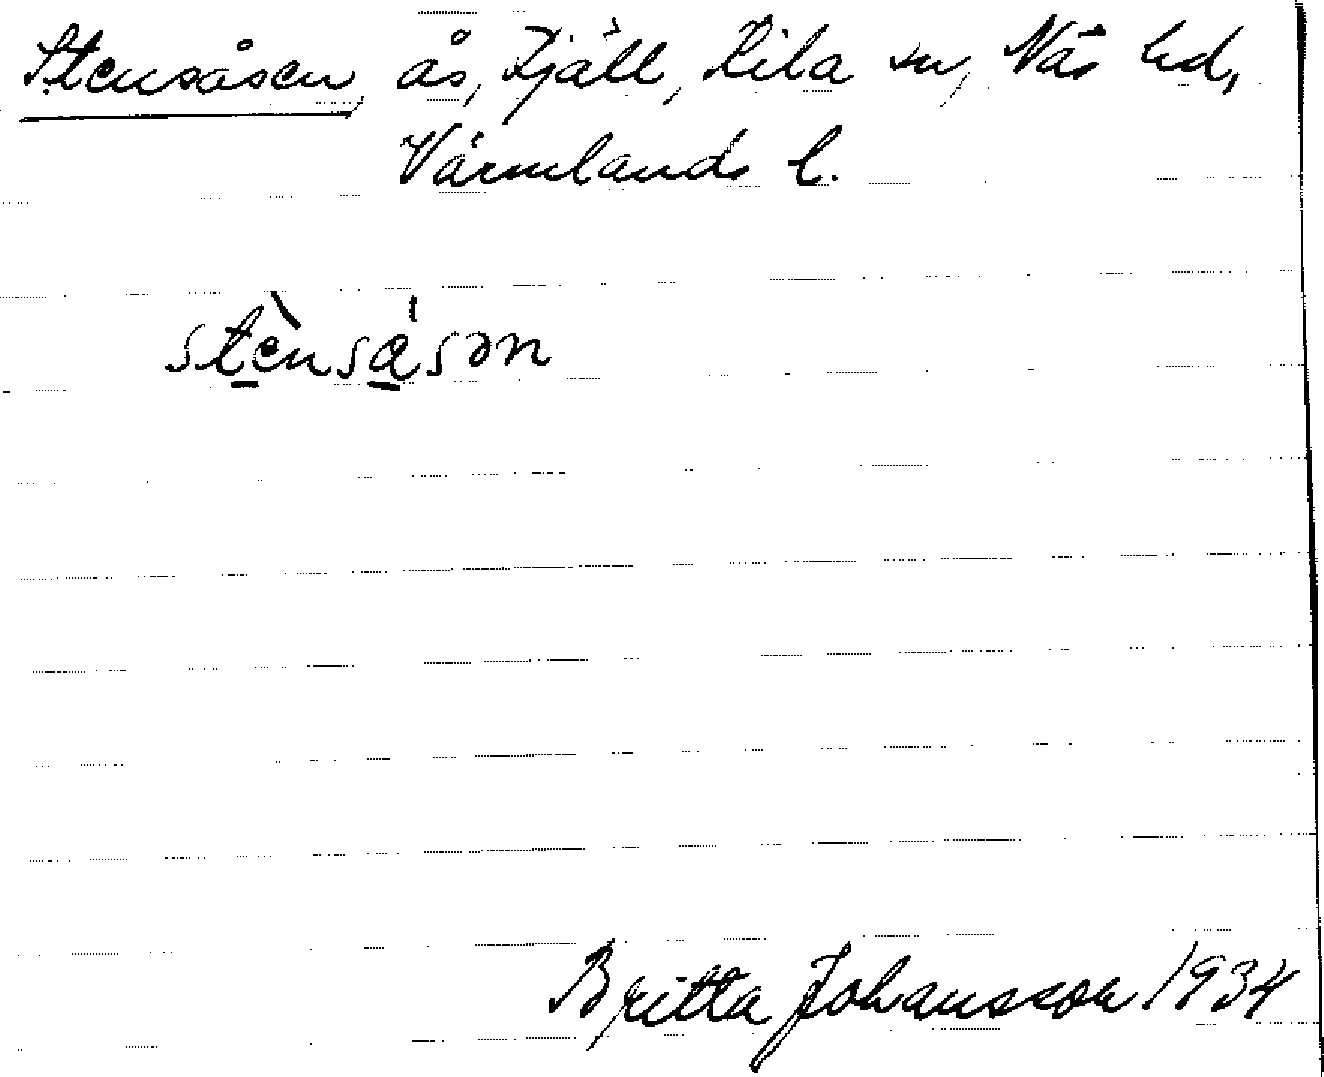 Stensåsen, ås, Fjäll, Kila sn, Näs hd,
Värmlands l.
stènsåsən
Britta Johansson 1934